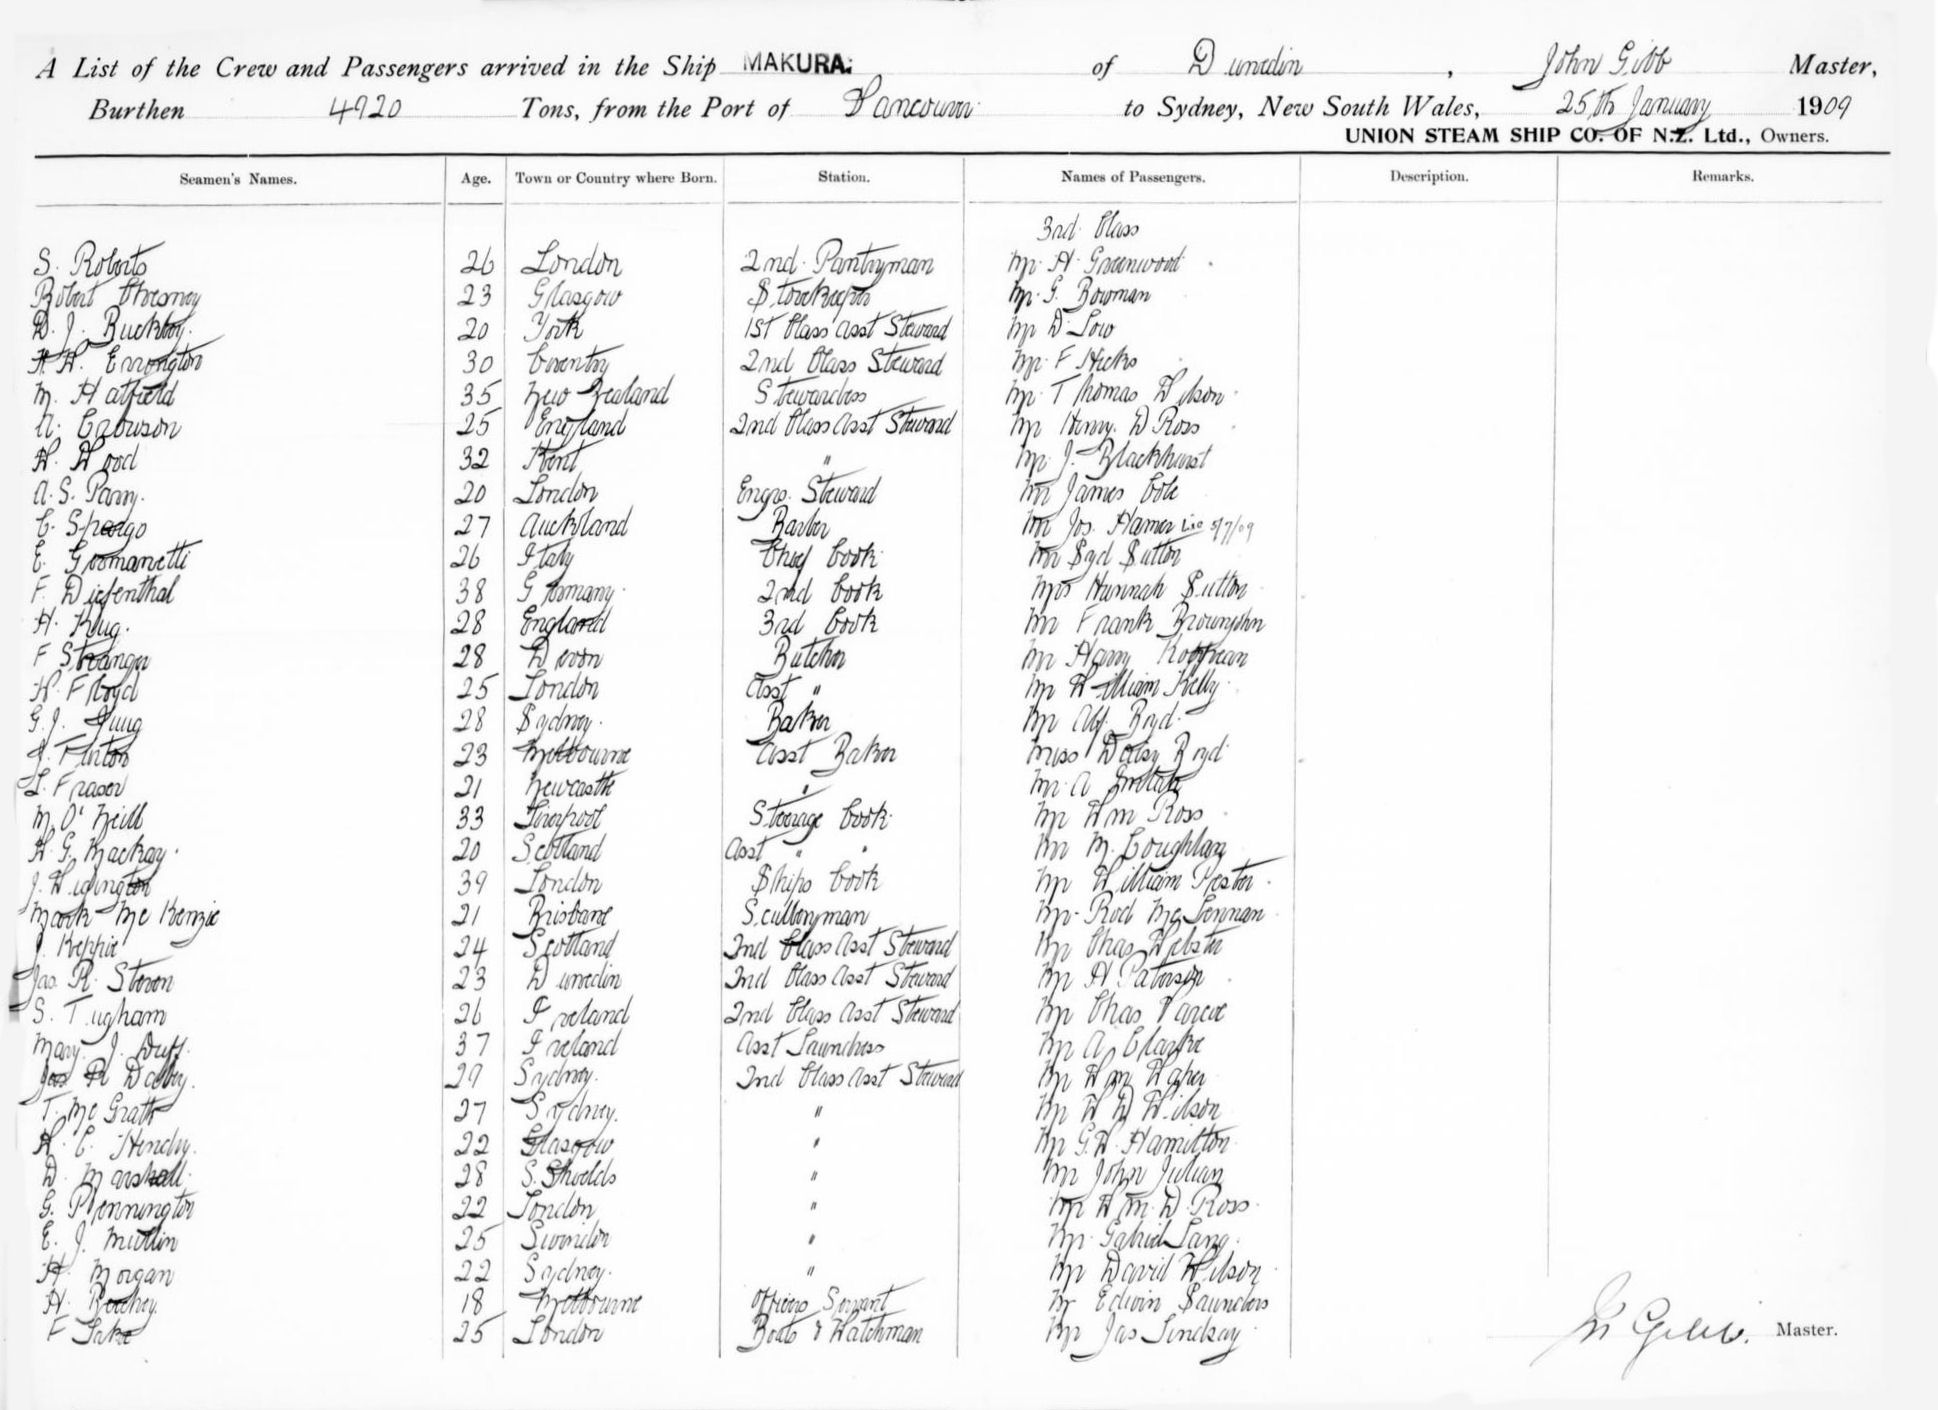 A List of the Crew and Passengers arrived in the Ship MAKURA. of Dunedin, John Gibb Master,
Burthen 4920 Tons, from the Port of Vancouver to Sydney, New South Wales, 25th January 1909
UNION STEAM SHIP CO. OF N.Z. Ltd., Owners.
Seamen's Names. Age. Town or Country where Born. Station. Names of Passengers. Description. Remarks.
3rd Class
S. Roberts 26 London 2nd Pantryman Mr. H. Greenwood
Robert Chesney 23 Glasgow Storekeeper Mr. G. Bowman
W. J. Buckby. 20 York 1st Class Asst Steward Mr D Low
H. W. Errongton 30 Coventry 2nd Class Steward Mr. F Hicks
M. Hatfield 35 New Zealand Stewardess Mr. Thomas Wilson
A. Crowson 25 England 2nd Class Asst Steward Mr Henry. D Ross
W. Wood 32 Kent " Mr. J. Blackhurst
A. S. Parry. 20 London Engrs. Steward Mr James Cole
C. Spargo 27 Auckland Barber Mr Jos. Hamer 5/7/09
E. 26 Italy Chief Cook Mr Syd Sutton
F. Diefenthal 38 Germany. 2nd Cook Mrs Hannah Sutton
H. Klug. 28 England 3rd Cook Mr Frank Brownjohn
F Stranger 28 Devon Butcher Mr Harry
W. Floyd 25 London Asst " Mr William Kelly
G. J. 28 Sydney. Baker Mr Alf. Boyd.
J. Finton 23 Melbourne Asst Baker Miss Boyd
L. Fraser 21 Newcastle " Mr. A
M. O'Neill 33 Liverpool Steerage Cook Mr Wm Ross
W. G. Mackay. 20 Scotland Asst " " Mr M. Coughlan
J. Widington 39 London Ships Cook Mr William Prester
Mark McKenzie 21 Brisbane Sculleryman Mr. Rod McLennan
J. Keppie 24 Scotland 2nd Class Asst Steward Mr Chas Webster
Jas. R. Steven 23 Dunedin 2nd Class Asst Steward Mr H Paterson
S. Tugham 26 Ireland 2nd Class Asst Steward Mr Chas Varcoe
Mary. J. Duff. 37 Ireland Asst Laundress Mr A Clarke
Jas R Dalby. 29 Sydney. 2nd Class Asst Steward Mr Wm
T. McGrath 27 Sydney. " Mr W D Wilson
W. C. Hendry. 22 Glasgow " Mr G. W. Hamilton
D. Marshall. 28 S. Shields " Mr John Julian
G. Pennington 22 London " Mr Wm. D. Ross
E. J. Mullin 25 Swindon " Mr. Gabriel Lang.
H. Morgan 22 Sydney. " Mr David Wilson
H. 18 Melbourne Officers Servant Mr Edwin Saunders
F Lake 25 London Boots & Watchman Mr Jas Lindsay
Jn Gibb. Master.